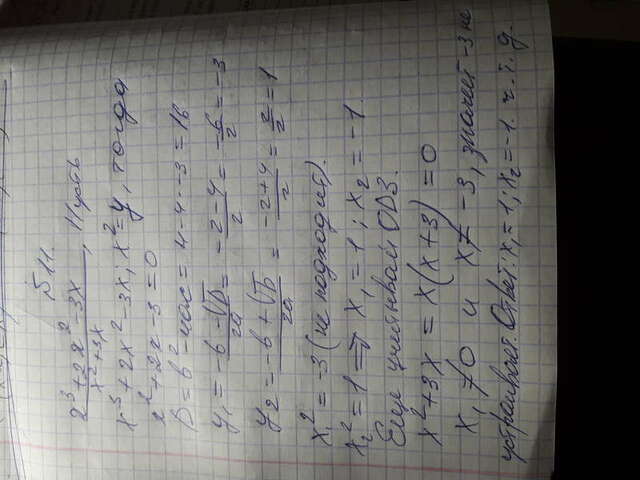 №11.
x³+2x²-3x / x²+3x, Пусть
x³+2x²-3x; x²=y, тогда
x²+2x-3=0
D=b²-4ac=4-4·-3=16
y₁=-b-√D/2a=-2-4/2=-6/2=-3
y₂=-b+√D/2a=-2+4/2=2/2=1
x₁²=-3(не подходит).
x₂²=1⇒x₁=1; x₂=-1.
Еще учитывай ОДЗ.
x²+3x=x(x+3)=0
x₁≠0 и x≠-3, значит -3 не
устраивает. Ответ: x₁=1; x₂=-1. ч.т.д.